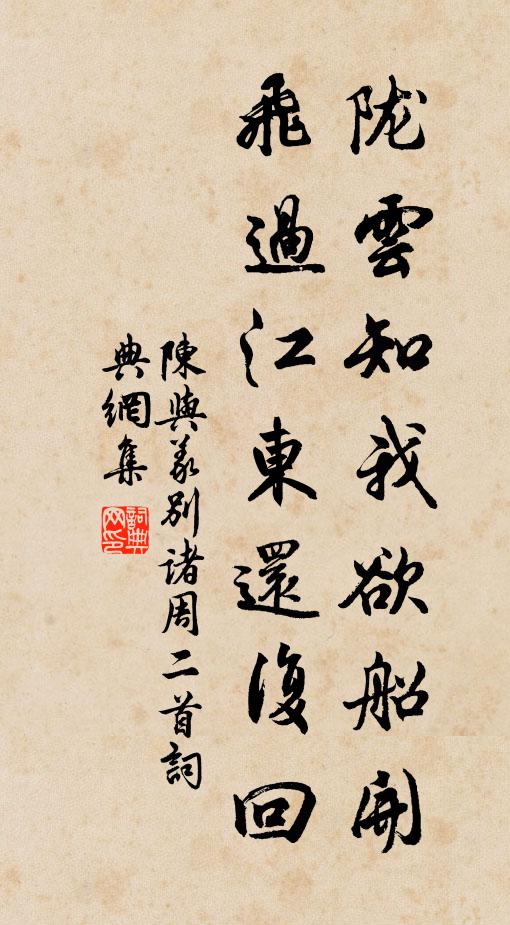 陇雲知我欲船開
飛過江東還復回
陳與義别诸周二首詞
典網集
詞典网印